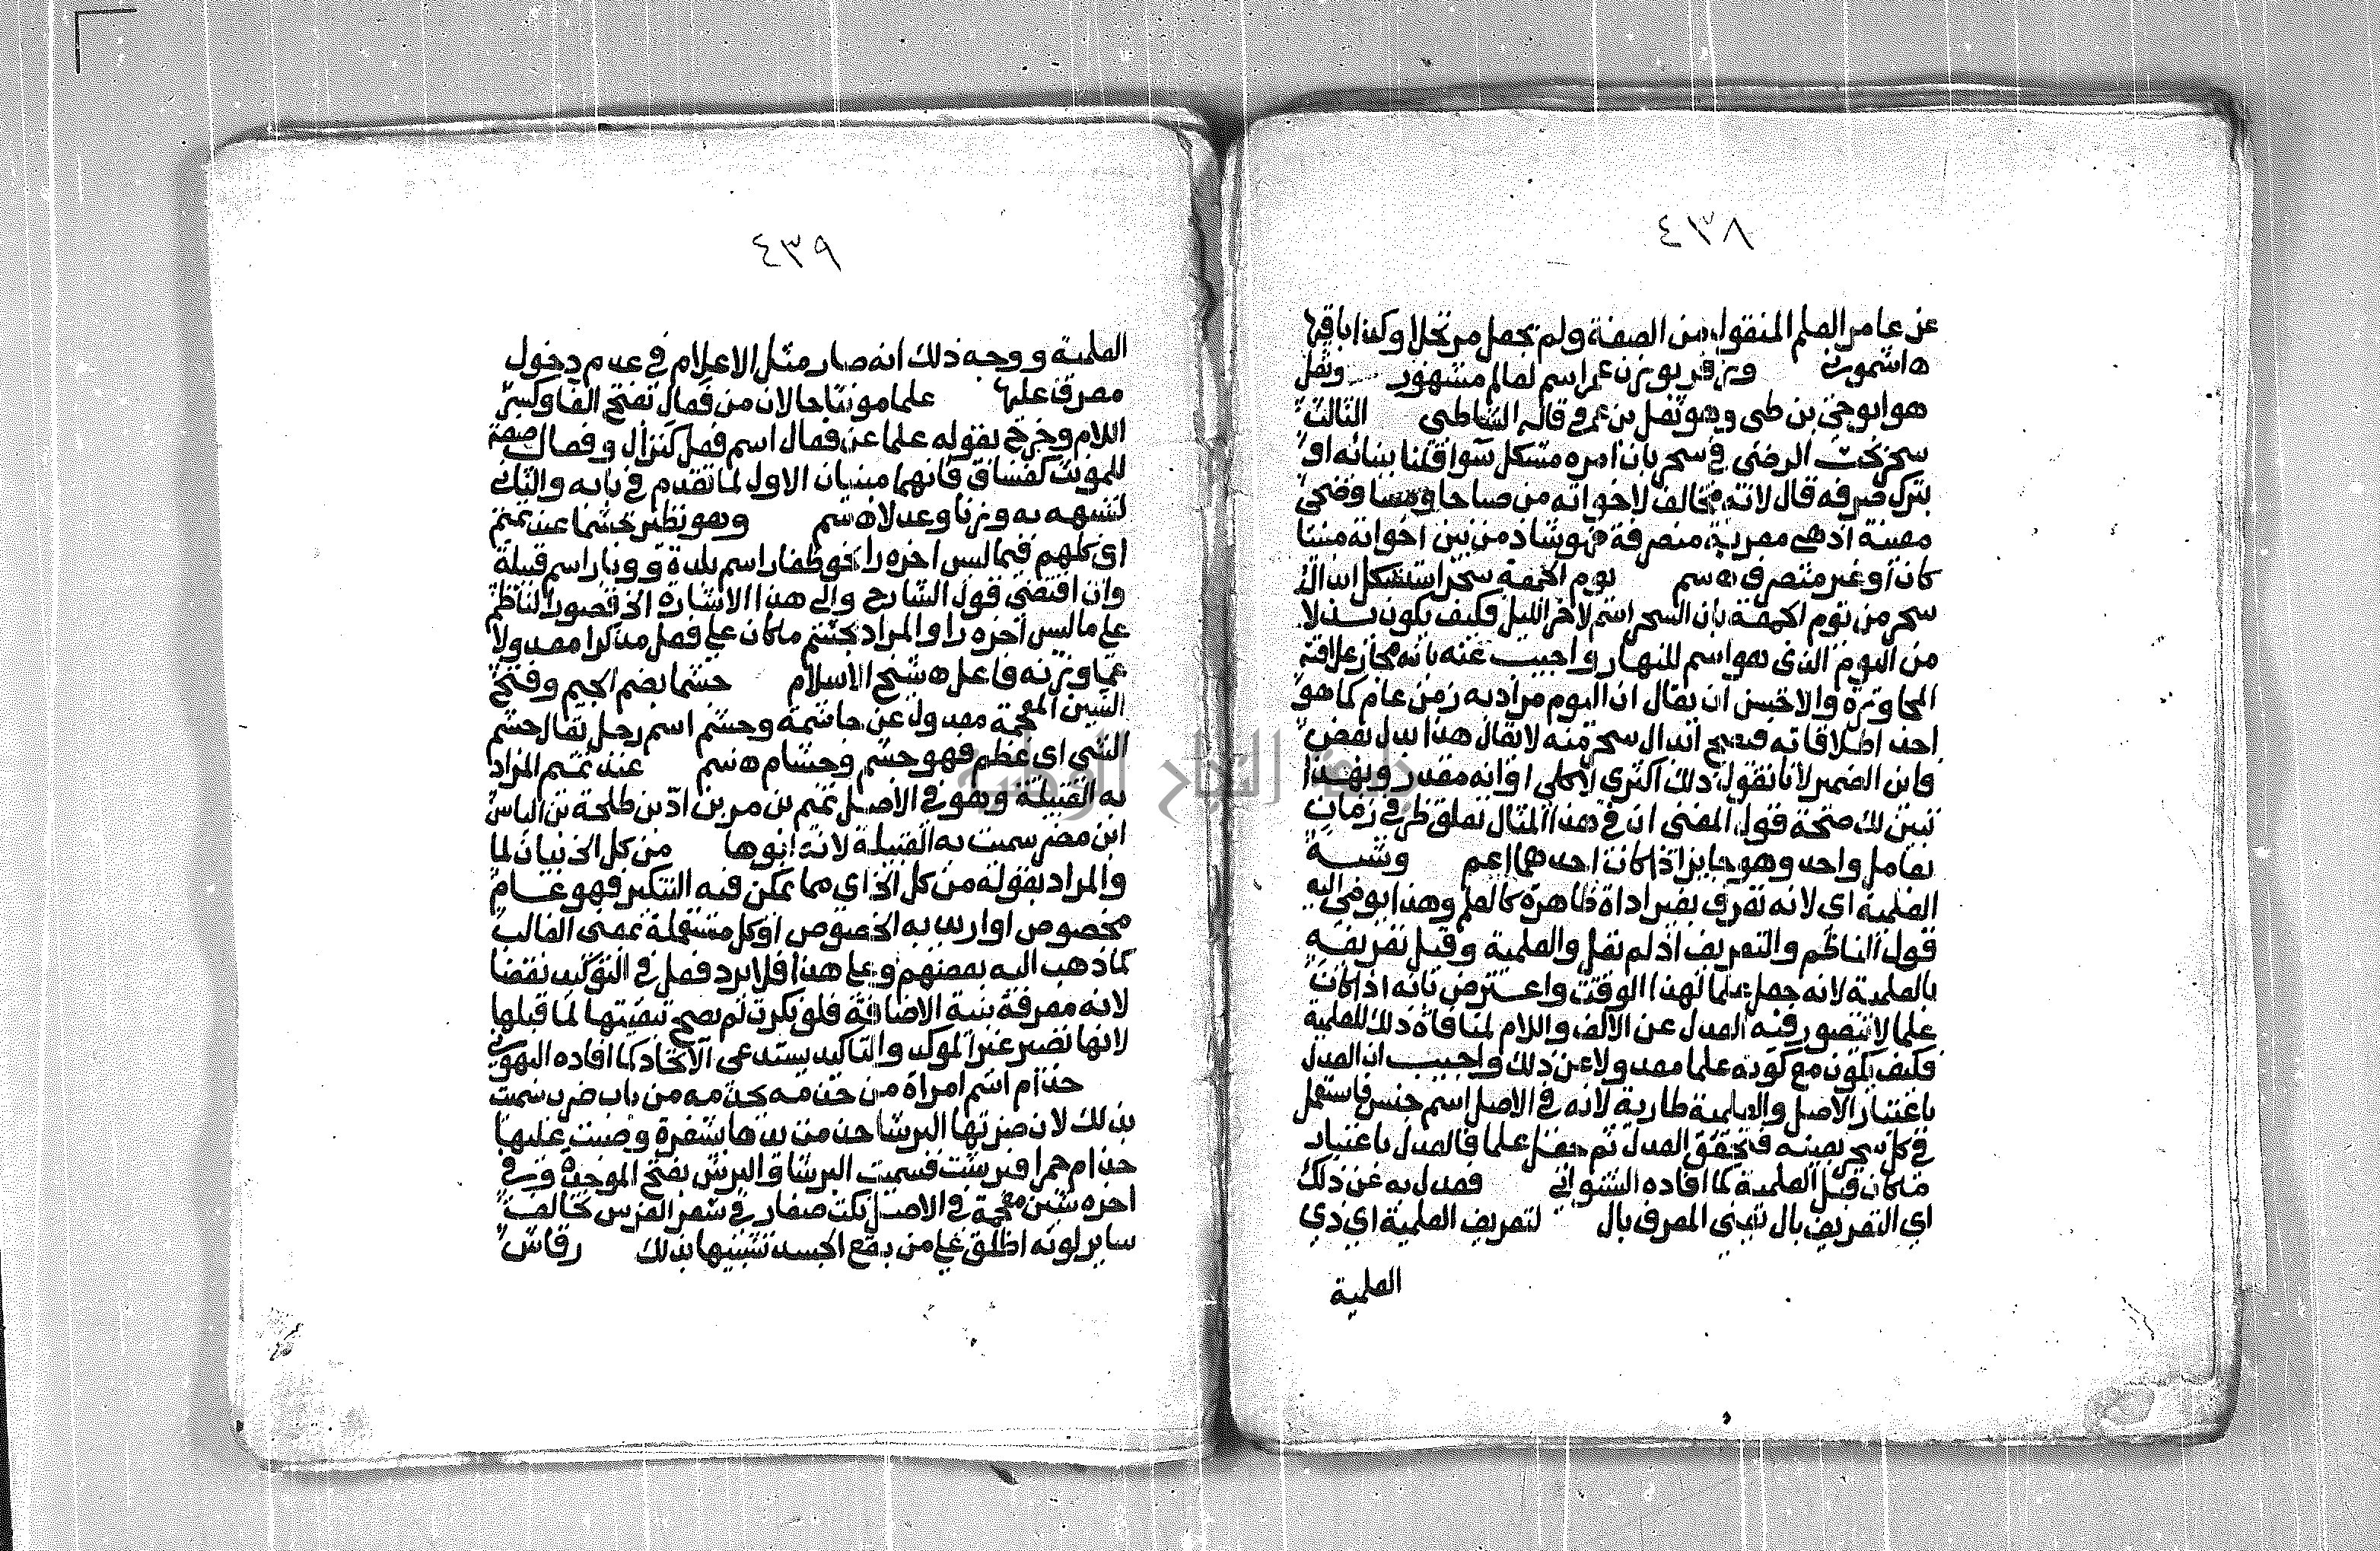 ٤٣٨
عن عامر العلم المنقول من الصفة ولم تجعل مرتجلا وكذا باقيها
هاشموني وزفر بوزن عمر اسم لعالم مشهور وثعل
هو ابوحي بن طي وهو ثعل بن عمرو قاله الشاطبي الثالث
سحر بحث الرضي في سحر بان امره مشكل سوا قلنا ببنائه او
بترك صرفه قال لانه مخالف لاخواته من صباحا ومسا وضحى
معينة اذ هي معربة منصرفة فهو شاذ من بين اخواته مبنيا
كان او غير منصرف ه سم يوم الجمعة سحر استشكل ابدال
سحر من يوم الجمعة بان السحر اسم لاخر الليل فكيف يكون بدلا
من اليوم الذي هو اسم للنهار واجيب عنه بانه مجاز علاقته
المجاورة والاحسن ان يقال ان اليوم مراد به زمن عام كما هو
احد اطلاقاته فصح ابدال سحر منه لا يقال هذا بدل بعض
واين الضمير لانا نقول ذلك اكثري لا كلي او انه مقدر وبهذا
تبين لك صحة قول المغني ان في هذا المثال تعلق ظرفي زمان
بعامل واحد وهو جايز اذا كان احدهما اعم وشبه
العلمية اي لانه تعرف بغير اداة ظاهرة كالعلم وهذا يومي اليه
قول الناظم والتعريف اذ لم يقل والعلمية وقيل تعريفه
بالعلمية لانه جعل علما لهذا الوقت واعترض بانه اذا كان
علما لا يتصور فيه العدل عن الالف واللام لمنافاة ذلك للعلمية
فكيف يكون مع كونه علما معدولا عن ذلك واجيب ان العدل
باعتبار الاصل والعلمية طارية لانه في الاصل اسم جنس فاستعمل
في كل سحر بعينه فتحقق العدل ثم جعل علما فالعدل باعتبار
ما كان قبل العلمية كما افاده الشنواني فعدل به عن ذلك
اي التعريف بال بمعنى المعرف بال لتعريف العلمية اي ذي
العلمية
٤٣٩
العلمية ووجه ذلك انه صار مثل الاعلام في عدم دخول
معرف عليها علما مونثا حال من فعال بفتح الفا وكسر
اللام وخرج بقوله علما عن فعال اسم فعل كنزال وفعال صفة
للمونث كفساق فانهما مبنيان الاول لما تقدم في بابه والثاني
لشبهه به وزنا وعدلا ه سم وهو نظير جشما عند تميم
اي كلهم فيما ليس اخره را نحو ظفار اسم بلدة ووبار اسم قبيلة
وان اقتضى قول الشارح والى هذا الاشارة الخ قصور الناظم
على ما ليس اخره را والمراد بجشم ما كان على فعل مذكرا معدولا
عما وزنه فاعل ه شيخ الاسلام جشما بضم الجيم وفتح
الشين المعجمة معدول عن جاشمة وجشم اسم رجل يقال جشم
الشي اي عظم فهو جشم وجشام ه سم عند تميم المراد
به القبيلة وهو في الاصل تميم بن مر بن اد بن طلحة بن الياس
ابن مضر سميت به القبيلة لانه ابوها من كل الخ بيان لما
والمراد بقوله من كل الخ اي مما يمكن فيه التنكير فهو عام
مخصوص او اريد به الخصوص او كل مستعملة بمعنى الغالب
كما ذهب اليه بعضهم وعلى هذا فلا يرد فعل في التوكيد نقضا
لانه معرفة بنية الاضافة فلو نكرت لم يصح تبعيتها لما قبلها
لانها تصير غير الموكد والتاكيد يستدعي الاتحاد كما افاده البهوتي
حذام اسم امراة من حذمه يحذمه من باب ضرب سميت
بذلك لان ضرتها البرشا حذمت يدها بشفرة وصبت عليها
حذام جمرا فبرشت فسميت البرشا والبرش بفتح الموحدة وفي
اخره شين معجمة في الاصل نكت صغار في شعر الفرس تخالف
ساير لونه اطلق على من بقع الجسد تشبيها بذلك رقاش